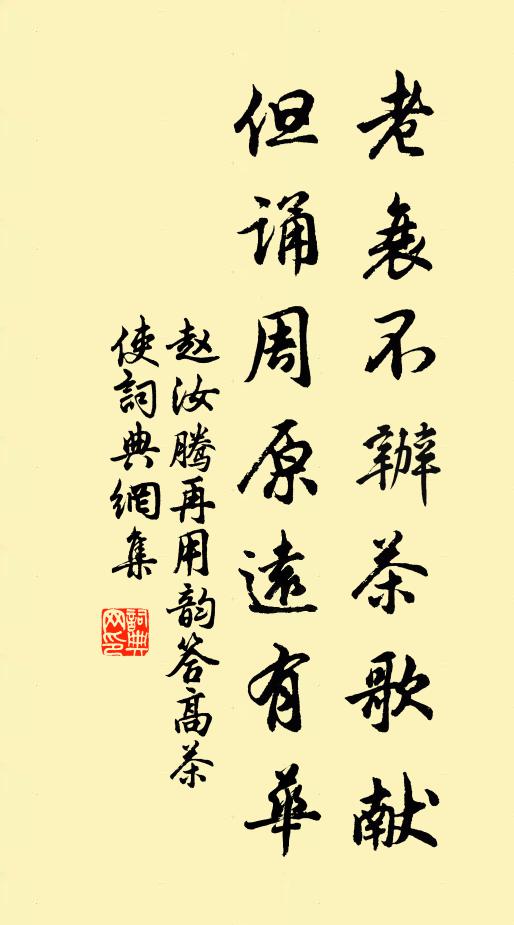 老衰不辦茶歌献
但诵周原遠有華
赵汝腾再用韵答高茶
使詞典網集
詞典
网印